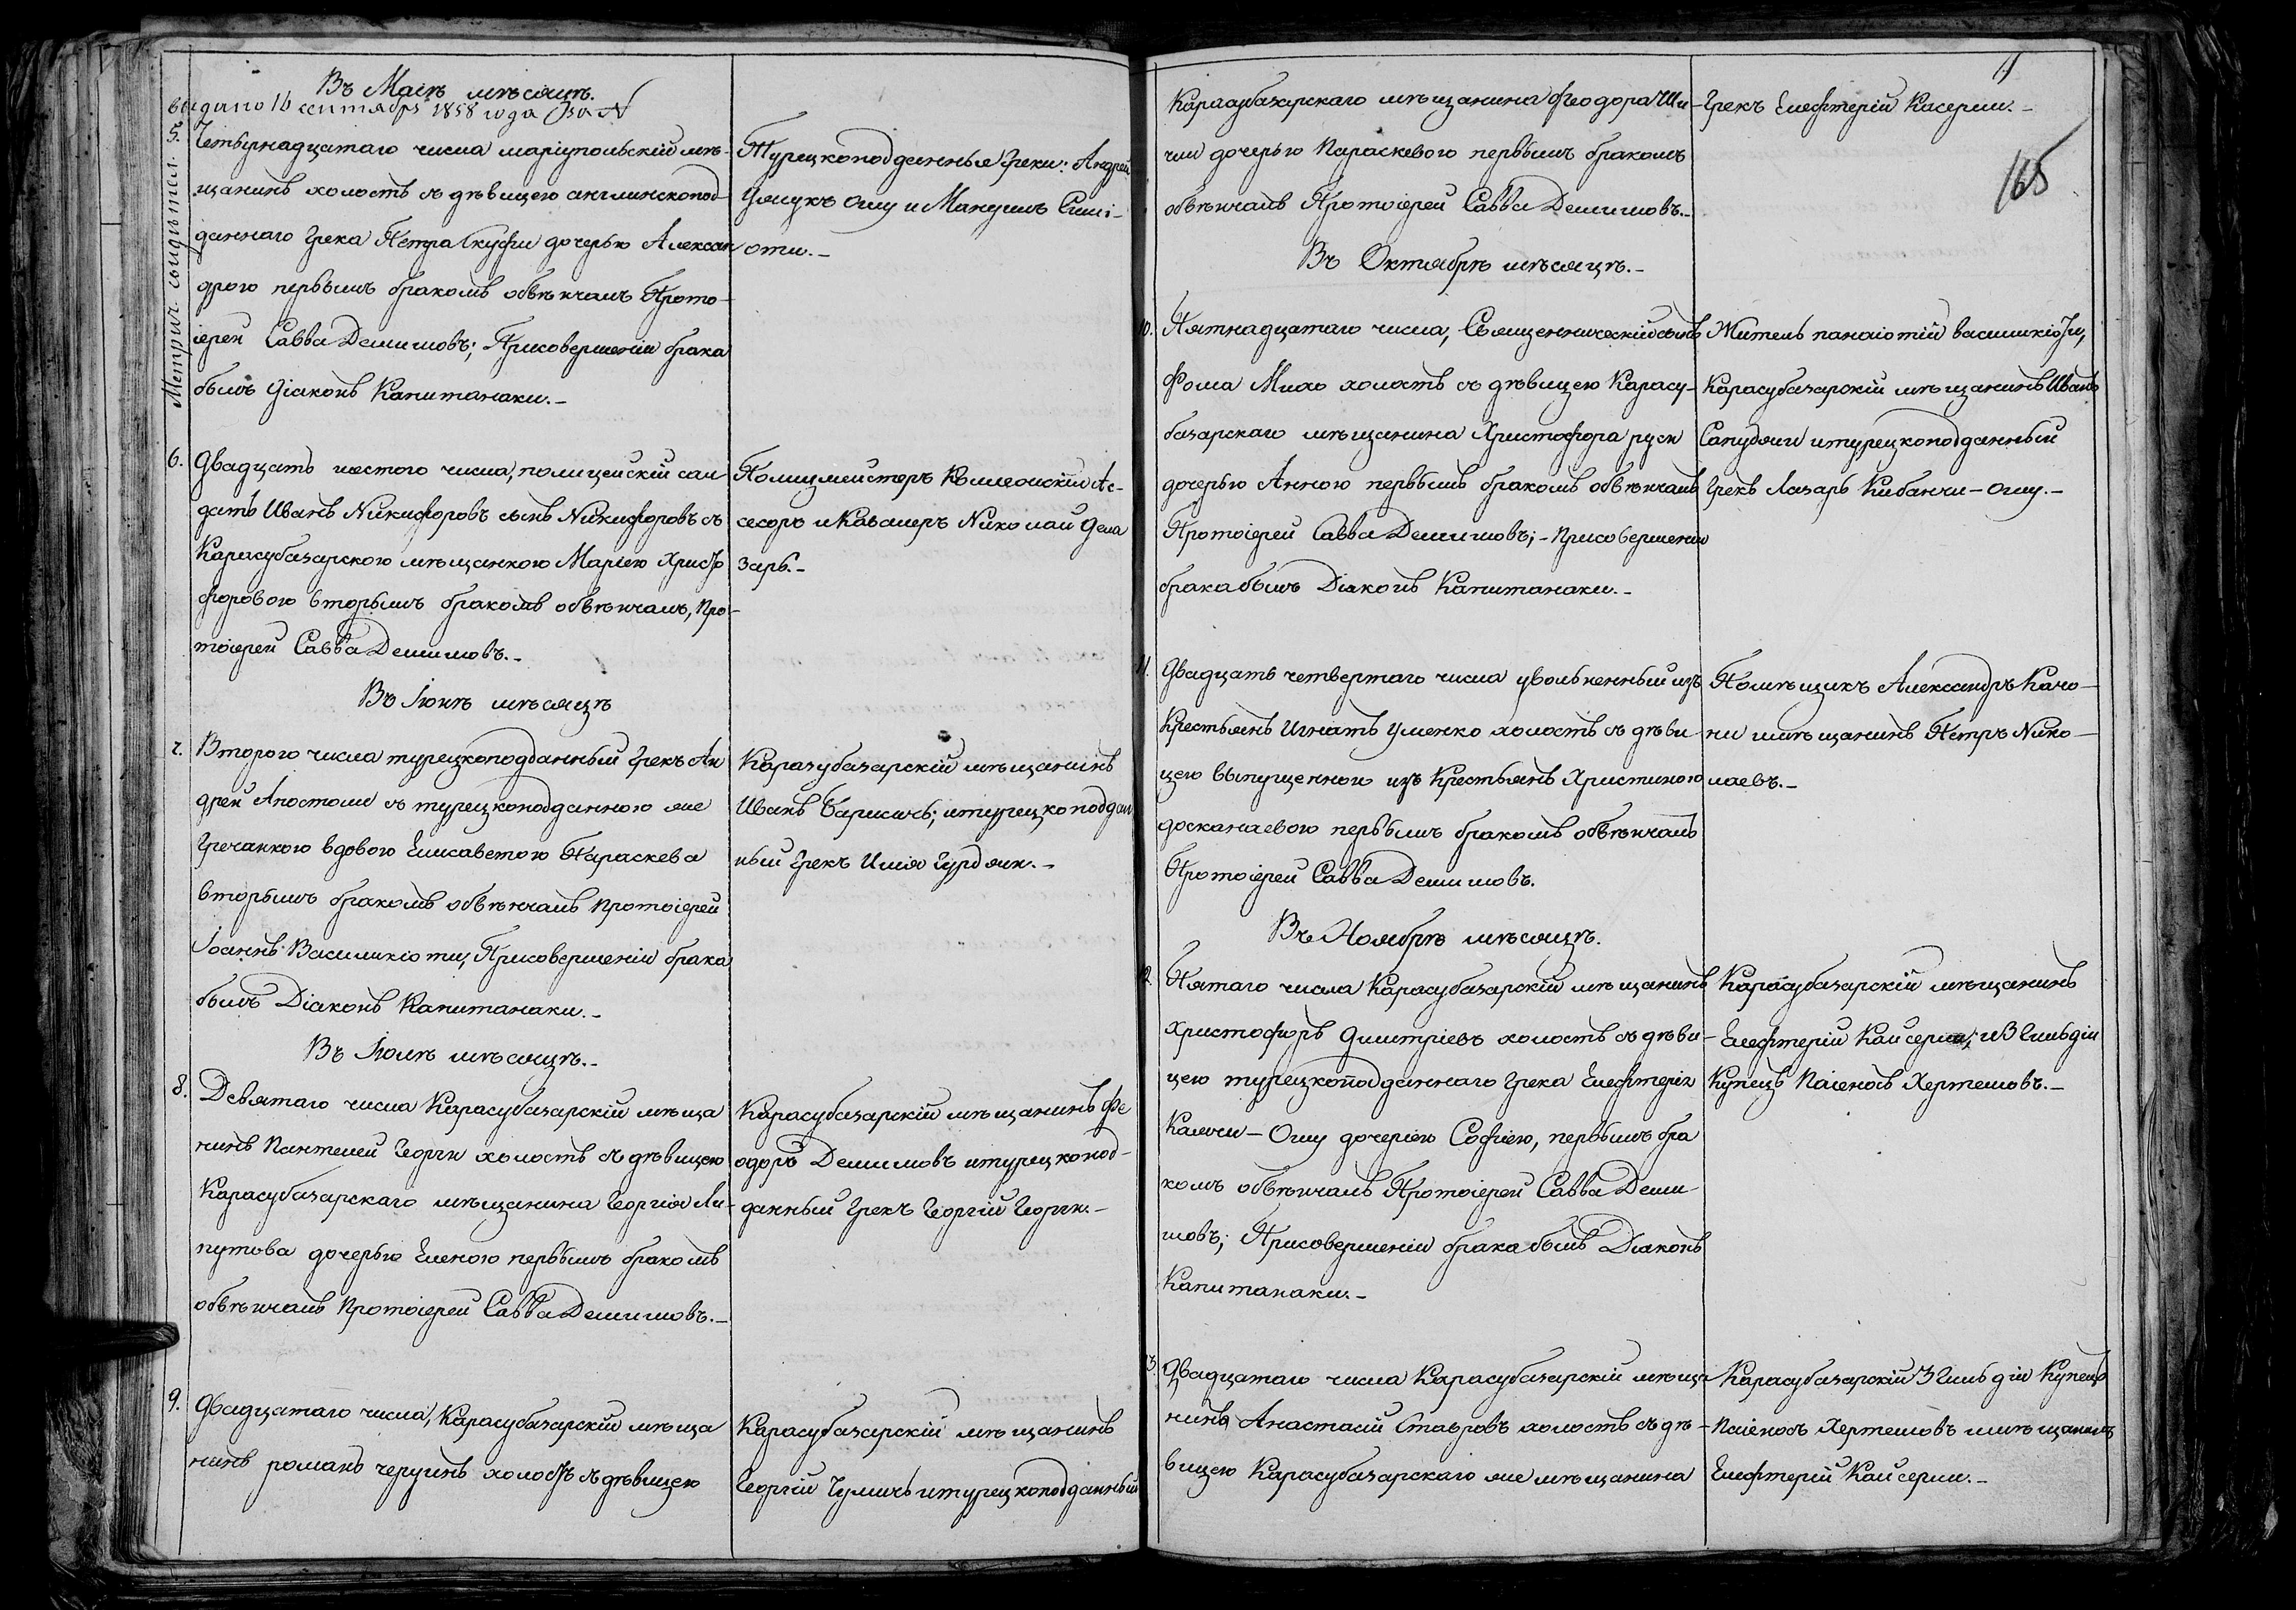 Въ Маіѣ мѣсяцѣ.
выдано 16 сентября 1858 года За №
Метрич. свидѣтел.
5. Четырнадцатаго числа маріупольскій мѣ-
щанинъ холостъ съ дѣвицею англинскопод-
даннаго Грека Петра Скуфи дочерью Алексан
дрою первымъ бракомъ обвѣнчалъ Прото-
іерей Савва Демишовъ; Присовершеніи брака
былъ Діаконъ Капитанаки.-
Турецкоподданныя Греки: Андрей
Оглу и Мануилъ Симі-
оти.-
6. Двадцать шестого числа, полицейскій сол
датъ Иванъ Никифоровъ сынъ Никифоровъ съ
Карасубазарскою мѣщанкою Маріею Христо
форовою вторымъ бракомъ обвѣнчалъ, Про-
тоіерей Савва Демишовъ.-
Полицмейстеръ Коллежскій Ас-
сесоръ и Кавалеръ Николай Дела
заръ.-
Въ Іюнѣ мѣсяцѣ
7. Второго числа турецкоподданный Грекъ Ан
дрей Апостоли съ турецкоподданною же
Гречанкою вдовою Елисаветою Параскева
вторымъ бракомъ обвѣнчалъ Протоіерей
Іоаннъ Василикіоти; Присовершеніи брака
былъ Діаконъ Капитанаки.-
Карасубазарскій мѣщанинъ
Иванъ Барисичъ; итурецкоподдан
ный Грекъ Илія Гурджи.-
Въ Іюлѣ мѣсяцѣ.-
8. Девятаго числа Карасубазарскій мѣща
нинъ Пантелей Георги холостъ съ дѣвицею
Карасубазарскаго мѣщанина Георгія Ли-
путова дочерью Еленою первымъ бракомъ
обвѣнчалъ Протоіерей Савва Демишовъ.-
Карасубазарскій мѣщанинъ Фе
одоръ Демишовъ итурецкопод-
данный Грекъ Георгій Георги.-
9. Двадцатаго числа, Карасубазарскій мѣща
нинъ романъ черушнъ холостъ съ дѣвицею
Карасубазарскій мѣщанинъ
Георгій Чумичъ итурецкоподданный
165
Карасубазарскаго мѣщанина Феодора Ши-
чли дочерью Параскевою первымъ бракомъ
обвѣнчалъ Протоіерей Савва Демишовъ.-
Грекъ Елефтерій Касерли.-
Въ Октябрѣ мѣсяцѣ.-
10. Пятнадцатаго числа, Священническій сынъ
Фома Михо холостъ съ дѣвицею Карасу-
базарскаго мѣщанина Христофора руси
дочерью Анною первымъ бракомъ обвѣнчалъ
Протоіерей Савва Демишовъ;- Присовершеніи
брака былъ Діаконъ Капитанаки.-
Житель панаіотій василикіоти,
Карасубазарскій мѣщанинъ Иванъ
Сапунджи итурецкоподданный
Грекъ Лазарь Кибанчи-Оглу.-
11. Двадцать четвертаго числа уволненный изъ
Крестьянъ Игнатъ Уменко холостъ съ дѣви
цею выпущенною изъ Крестьянъ Христиною
досканаевою первымъ бракомъ обвѣнчалъ
Протоіерей Савва Демишовъ.
Помѣщикъ Александръ Качо-
ни имѣщанинъ Петръ Нико-
лаевъ.-
Въ Ноябрѣ мѣсяцѣ.
12. Пятаго числа Карасубазарскій мѣщанинъ
Христофоръ Димитріевъ холостъ съ дѣви-
цею турецкоподданнаго Грека Елефтерія
Калечи-Оглу дочеріею Софіею, первымъ бра
комъ обвѣнчалъ Протоіерей Савва Деми
шовъ; Присовершеніи брака былъ Діаконъ
Капитанаки.-
Карасубазарскій мѣщанинъ
Елефтерій Кайсерли; и 3 Гильдіи
Купецъ Паіеносъ Хертешовъ.-
13. Двадцатаго числа Карасубазарскій мѣща
нинъ Анастасій Ставровъ холостъ съ дѣ-
вицею Карасубазарскаго же мѣщанина
Карасубазарскій 3 Гильдіи Купецъ
Паіеносъ Хертешовъ имѣщанинъ
Елефтерій Кайсерли.-